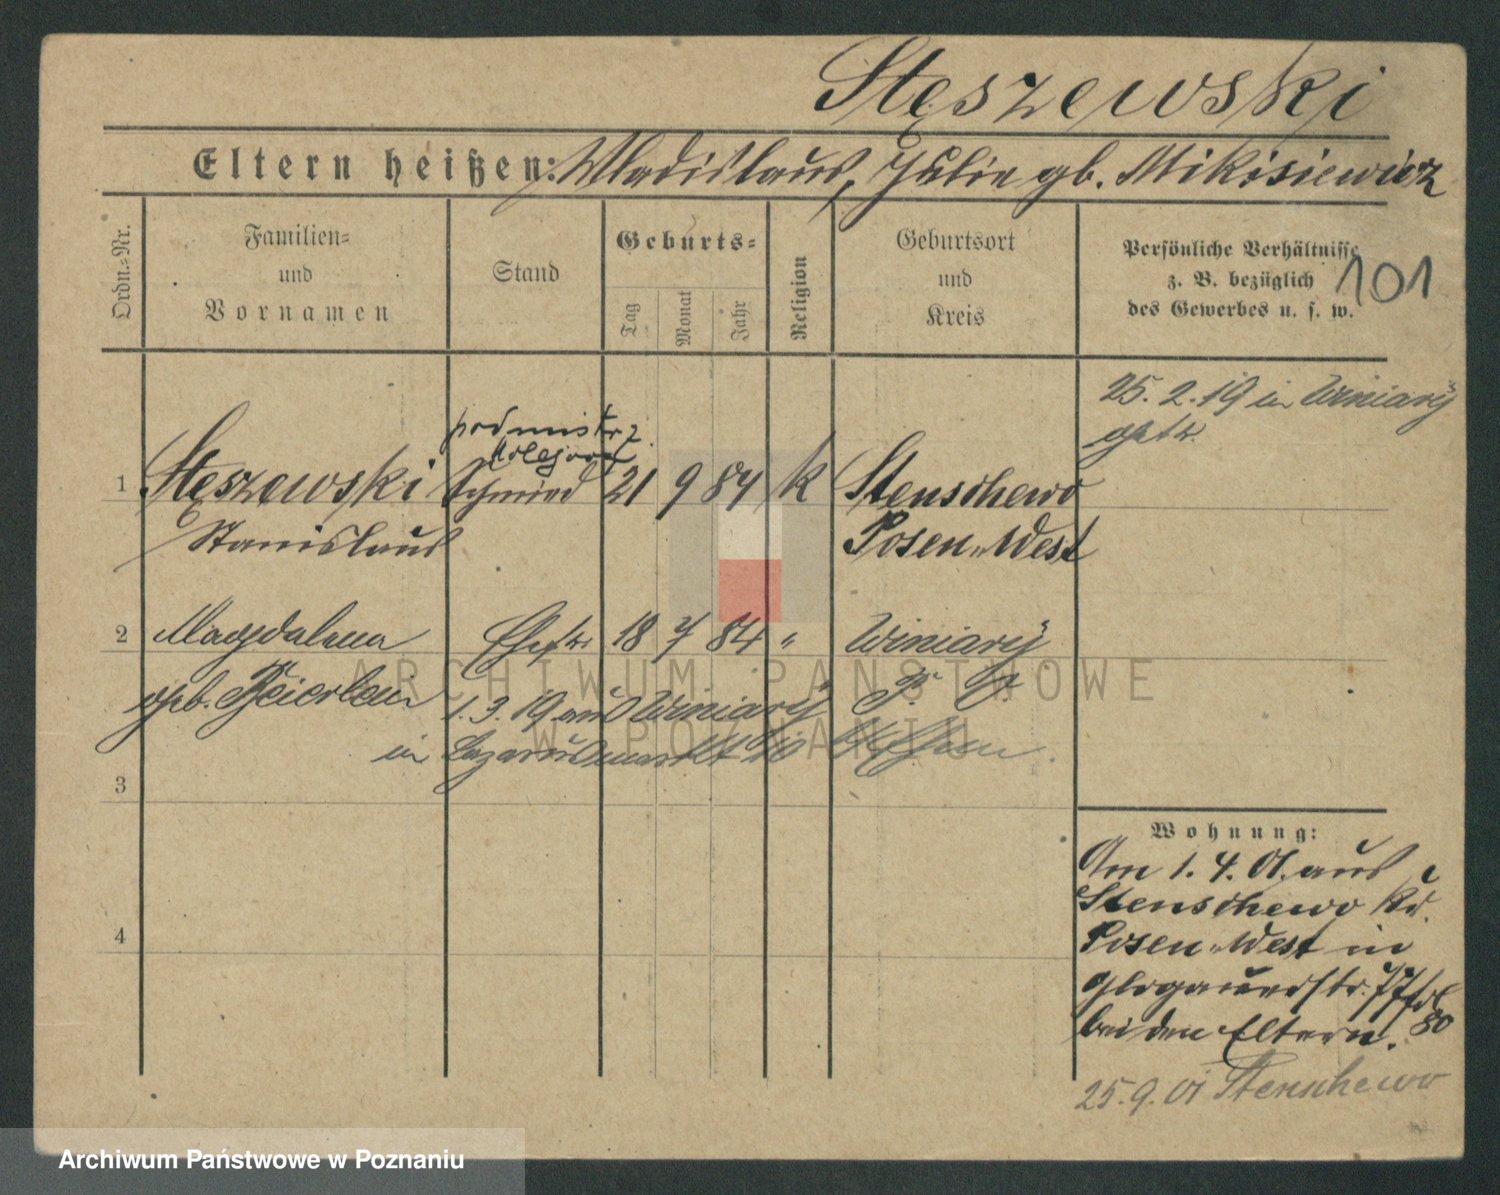 Stęszewski
Eltern heißen: Wladislaus, Julie gb. Mikisiewicz
Ordn.=Nr.
Familien=
und
Vornamen
Stand
Geburts=
Tag
Monat
Jahr
Religion
Geburtsort
und
Kreis
Persönliche Verhältnisse
z. B. bezüglich
des Gewerbes u. s. w.
101
25. 2. 19 in Winiary
podmistrz
1 Stęszewski Schmied 21 9 84 k Stenschewo
Stanislaus Posen-West
2 Magdalena Ehefr. 18 7 84 " Winiary
geb. Beierlein P. O.
1. 3. 19 aus Winiary
in Lazarusmarkt
3
4
Wohnung:
Am 1. 4. 01. aus
Stenschewo Kr.
Posen-West in
Glogauerstr. 77
bei den Eltern. 80
25. 9. 01 Stenschewo
ARCHIWUM PAŃSTWOWE
W POZNANIU
Archiwum Państwowe w Poznaniu